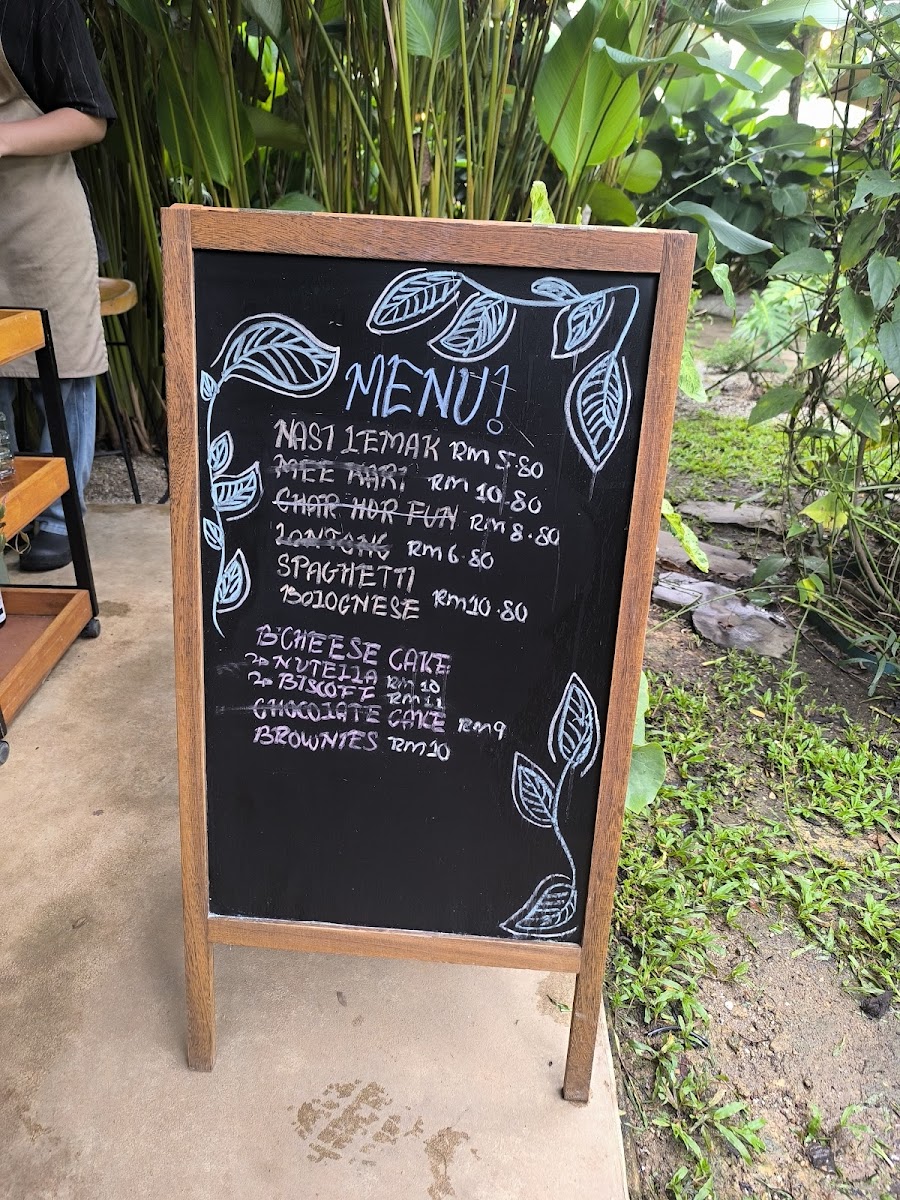 MENU!
NASI LEMAK RM 5.80
MEE KARI RM 10.80
CHAR HOR FUN RM 8.80
LONTONG RM 6.80
SPAGHETTI
BOLOGNESE RM 10.80
B'CHEESE CAKE
NUTELLA RM 10
BISCOFF RM 11
CHOCOLATE CAKE RM 9
BROWNIES RM 10